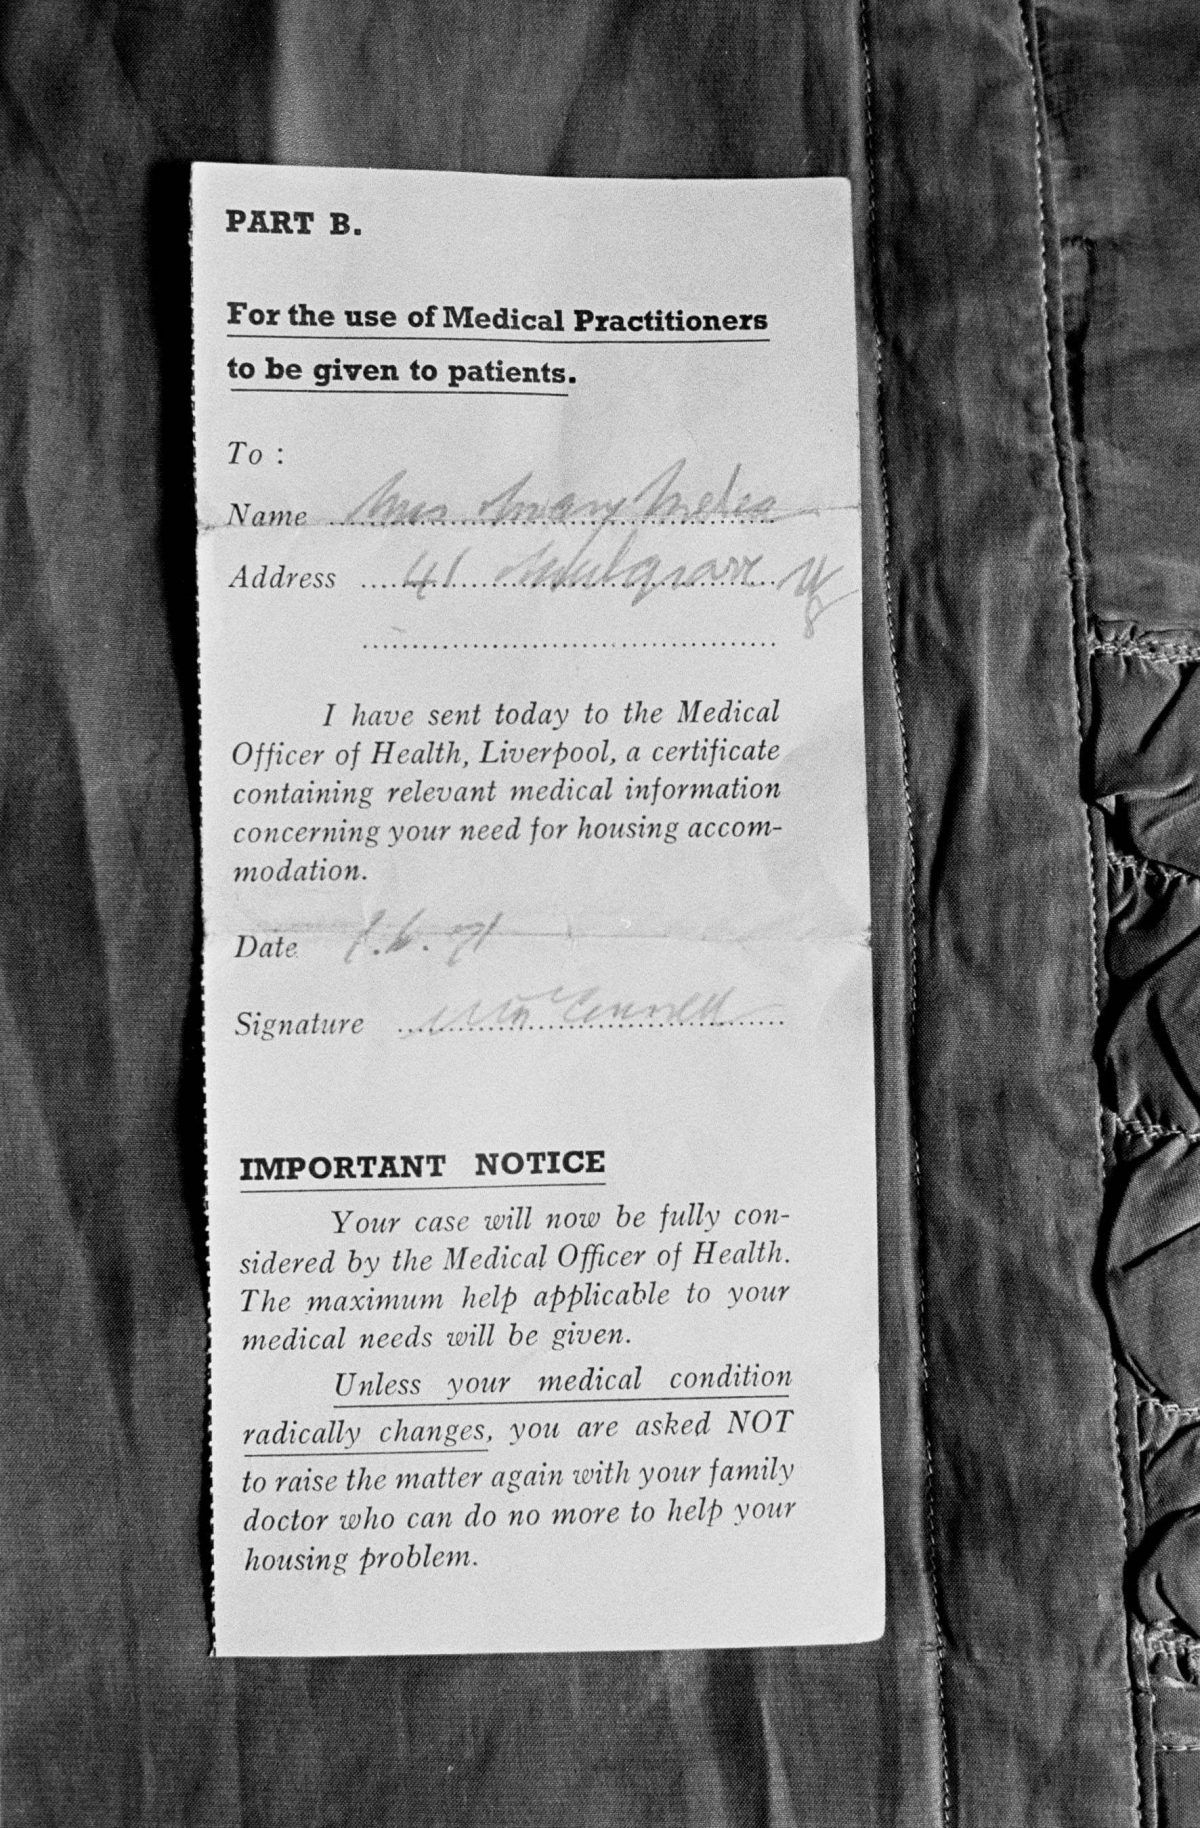 PART B.
For the use of Medical Practitioners
to be given to patients.
To :
Name Mrs Mary
Address 41 Mulgrave
I have sent today to the Medical
Officer of Health, Liverpool, a certificate
containing relevant medical information
concerning your need for housing accom-
modation.
Date 7.6.71
Signature McConnell
IMPORTANT NOTICE
Your case will now be fully con-
sidered by the Medical Officer of Health.
The maximum help applicable to your
medical needs will be given.
Unless your medical condition
radically changes, you are asked NOT
to raise the matter again with your family
doctor who can do no more to help your
housing problem.